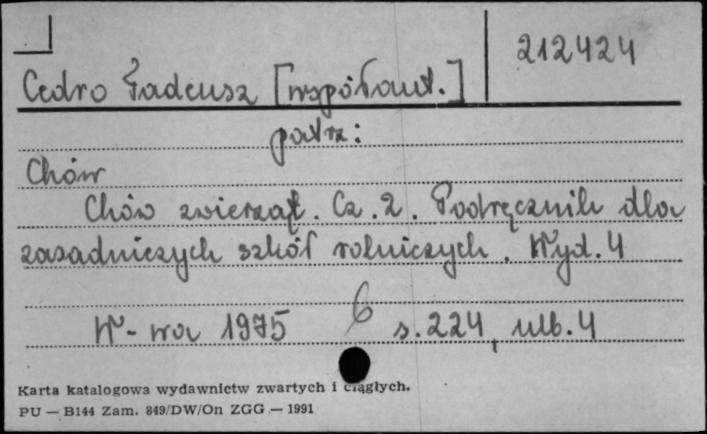 212424
Cedro Tadeusz [współaut.]
patrz:
Chów
Chów zwierząt. Cz. 2. Podręcznik dla
zasadniczych szkół rolniczych. Wyd. 4
W-wa 1975 6 s. 224, nlb. 4
Karta katalogowa wydawnictw zwartych i ciągłych.
PU — B144 Zam. 849/DW/On ZGG — 1991